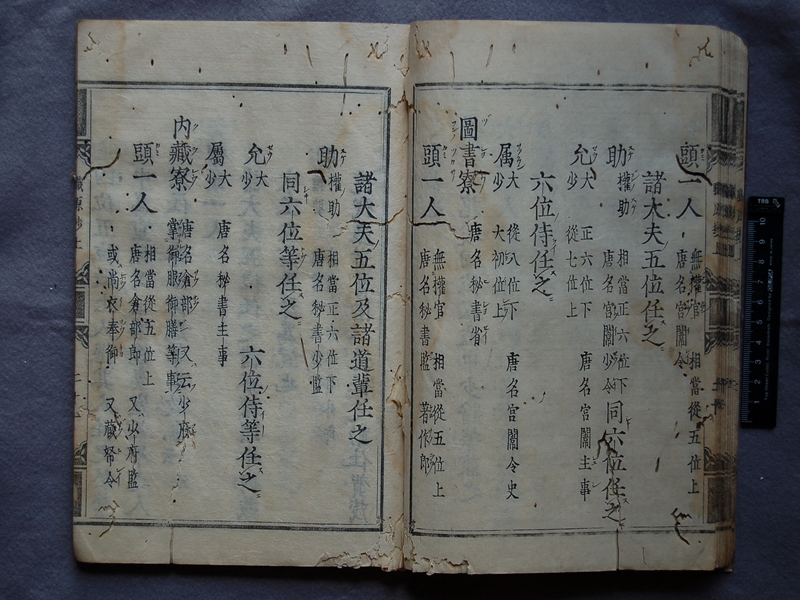 頭一人 無權官 相當從五位上
唐名宮闈令
諸大夫五位任之
助 權助 相當正六位下
唐名宮闈少令 同六位任之
允 大 正六位下 唐名宮闈主事
少 從七位上
六位侍任之
属 大 從八位下 唐名宮闈令史
少 大初位上
圖書寮 唐名秘書省
頭一人 無權官 相當從五位上
唐名秘書監 著作郎
諸大夫五位及諸道輩任之
助 權助 相當正六位下
唐名秘書少監
同六位等任之
允 大
少 六位侍等任之
屬 大
少 唐名秘書主事
内藏寮 唐名倉部 又云少府
掌御服御膳等事
頭一人 相當從五位上
唐名倉部郎 又少府監
或尚衣奉御 又藏帑令
職原抄上